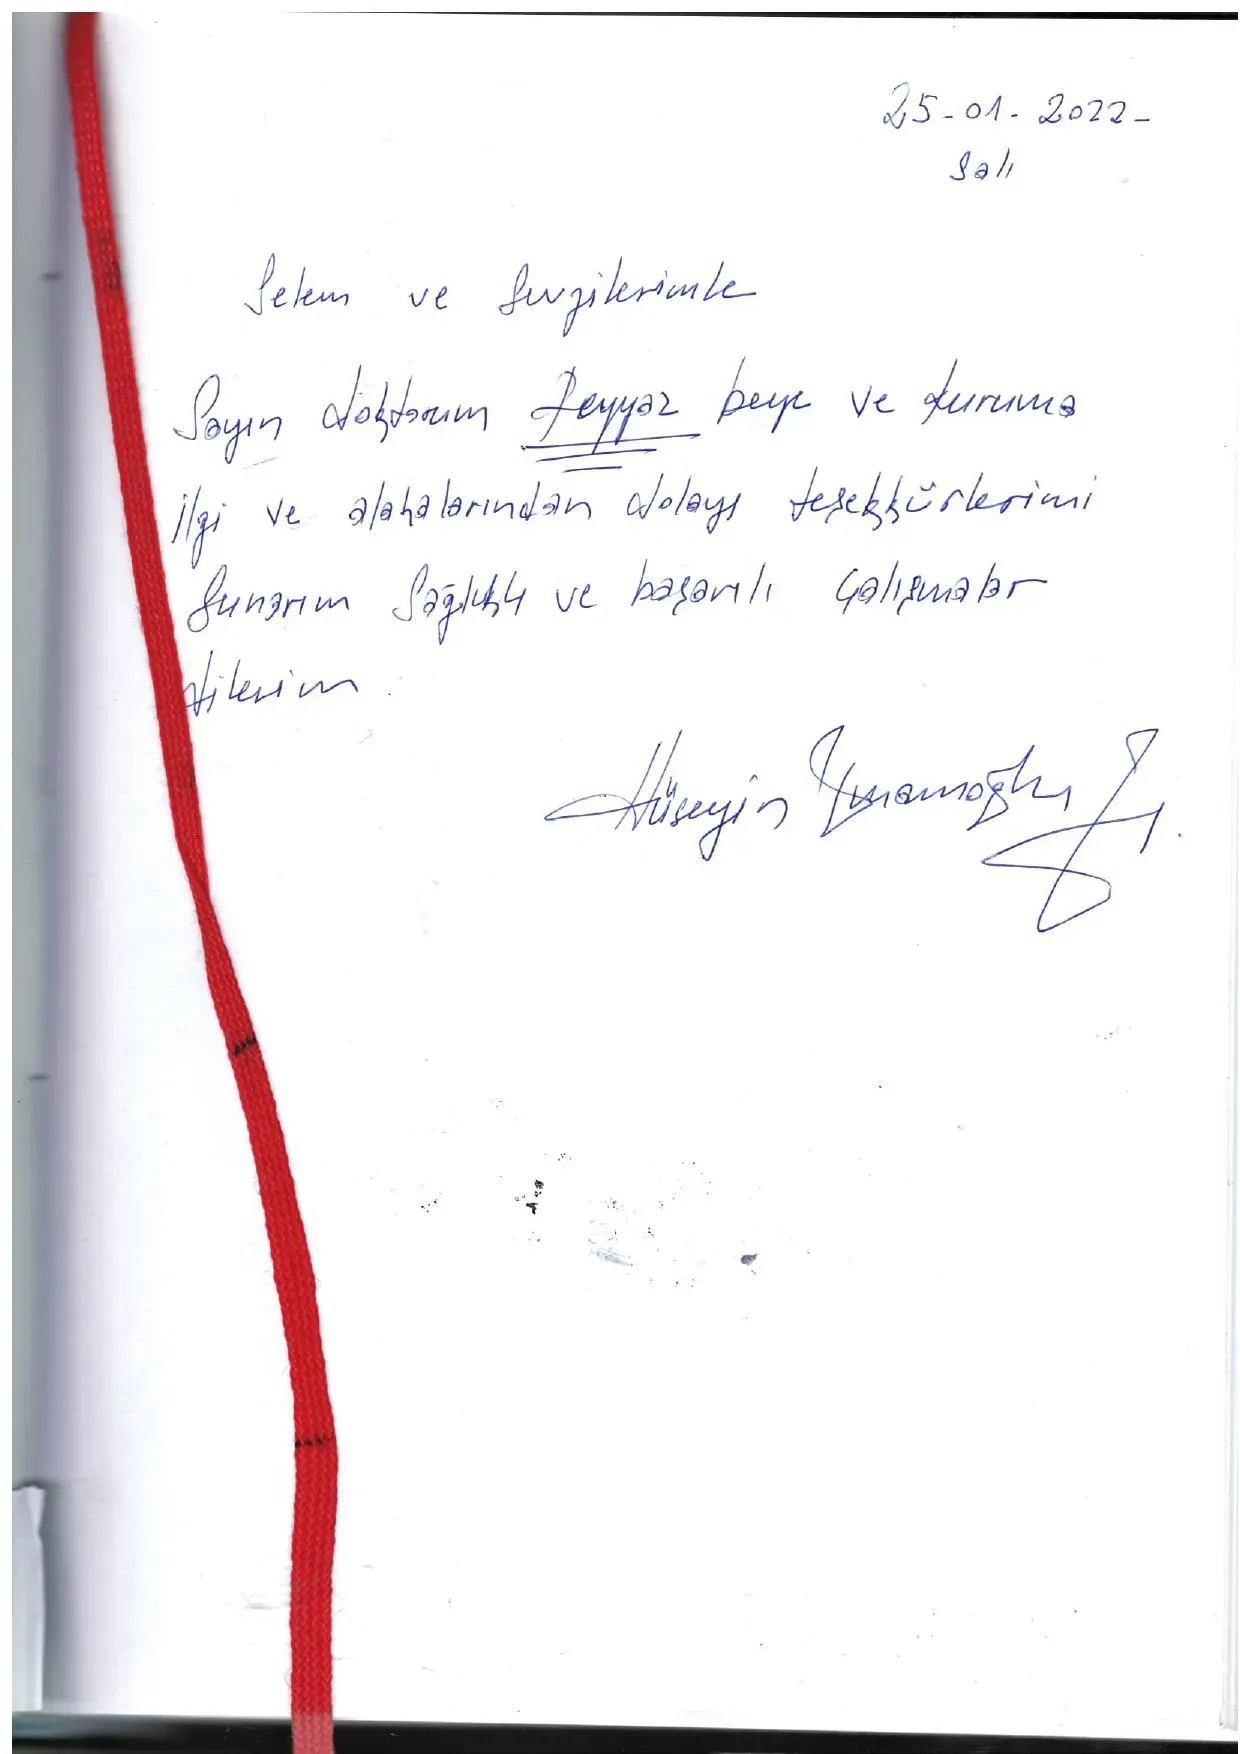 25-01-2022-
Salı
Selam ve Sevgilerimle
Sayın doktorum Feyyaz beye ve kuruma
ilgi ve alakalarından dolayı teşekkürlerimi
Sunarım Sağlıklı ve başarılı çalışmalar
dilerim.
Hüseyin